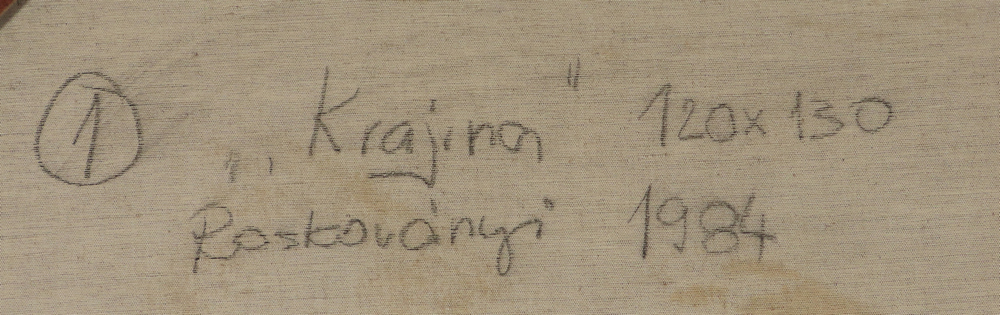 ① „Krajina" 120x130
Roskoványi 1984